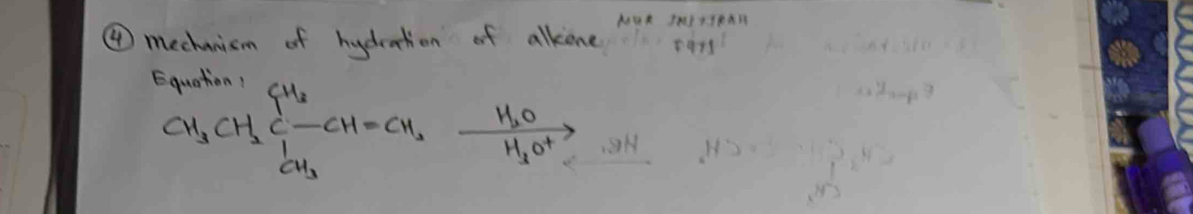 ④ mechanism of hydration of alkene
NUR
Equation:
CH₃
CH₃CH₂C—CH=CH₂ H₂O
H₃O⁺
CH₃